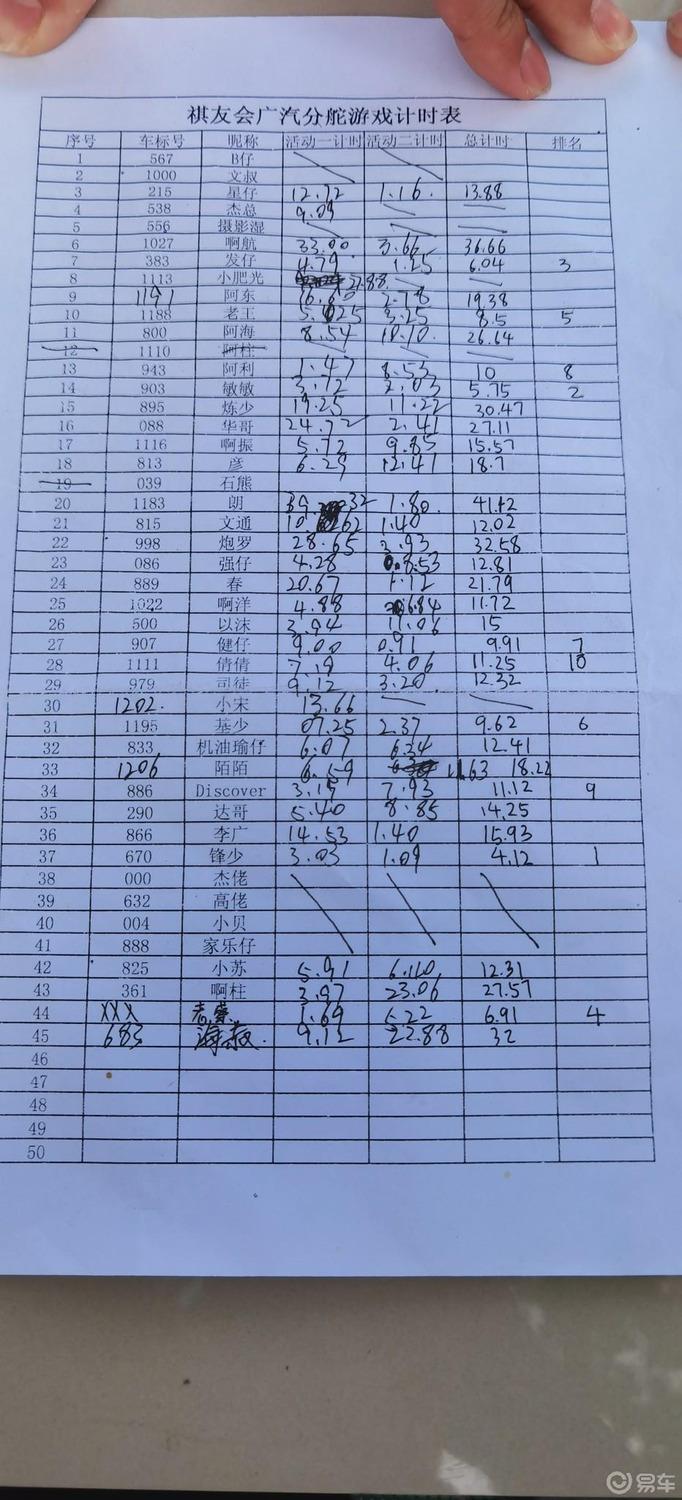 祺友会广汽分舵游戏计时表
序号 车标号 昵称 活动一计时 活动二计时 总计时 排名
1 567 B仔
2 1000 文叔
3 215 星仔 12.72 1.16 13.88
4 538 杰总 9.09
5 556 摄影湿
6 1027 啊航 33.00 3.66 36.66
7 383 发仔 4.79 1.25 6.04 3
8 1113 小肥光 27.88
9 1191 阿东 16.60 2.78 19.38
10 1188 老王 5.25 3.25 8.5 5
11 800 阿海 8.54 18.10 26.64
12 1110 阿柱
13 943 阿利 1.47 8.53 10 8
14 903 敏敏 3.72 2.03 5.75 2
15 895 炼少 19.25 11.22 30.47
16 088 华哥 24.72 2.41 27.11
17 1116 啊振 5.72 9.85 15.57
18 813 彦 6.29 12.41 18.7
19 039 石熊
20 1183 朗 39.32 1.80 41.12
21 815 文通 10.62 1.40 12.02
22 998 炮罗 28.65 3.93 32.58
23 086 强仔 4.28 8.53 12.81
24 889 春 20.67 1.12 21.79
25 1022 啊洋 4.88 6.84 11.72
26 500 以沫 3.94 11.06 15
27 907 健仔 9.00 0.91 9.91 7
28 1111 倩倩 7.19 4.06 11.25 10
29 979 司徒 9.12 3.20 12.32
30 1202. 小宋 13.66
31 1195 基少 07.25 2.37 9.62 6
32 833 机油瑜仔 6.07 6.34 12.41
33 1206 陌陌 6.59 11.63 18.22
34 886 Discover 3.19 7.93 11.12 9
35 290 达哥 5.40 8.85 14.25
36 866 李广 14.53 1.40 15.93
37 670 锋少 3.03 1.09 4.12 1
38 000 杰佬
39 632 高佬
40 004 小贝
41 888 家乐仔
42 825 小苏 5.91 6.40 12.31
43 361 啊柱 3.97 23.06 27.57
44 XXX 1.69 5.22 6.91 4
45 683 海叔. 9.12 22.88 32
46
47
48
49
50
易车